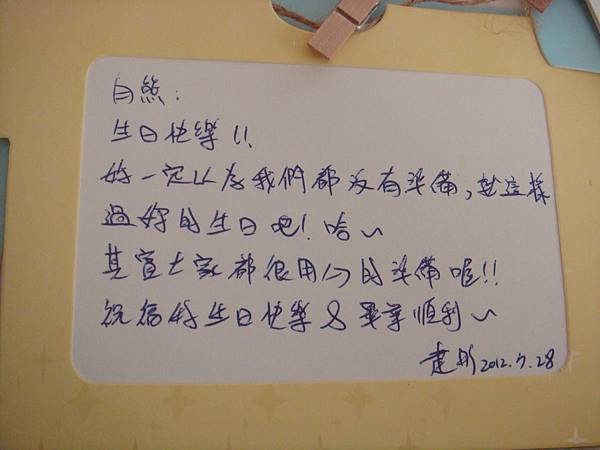 白熊:
生日快樂!!
妳一定以為我們都沒有準備,就這樣
過妳的生日吧!哈~
其實大家都很用心的準備喔!!
祝福妳生日快樂&畢業順利~
建彤 2012.7.28